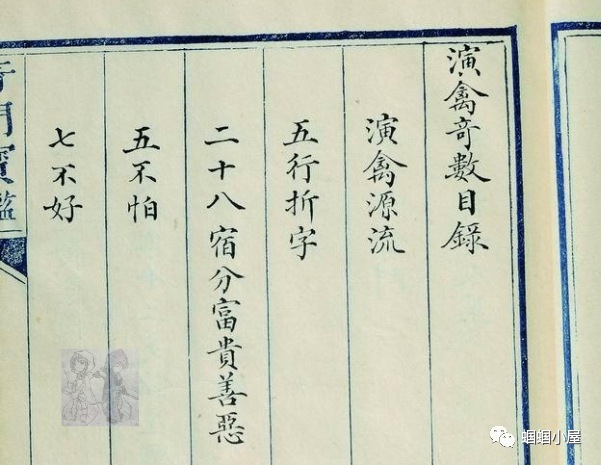 演禽奇數目錄
演禽源流
五行折字
二十八宿分富貴善惡
五不怕
七不好
奇門寶鑑
蝈蝈小屋